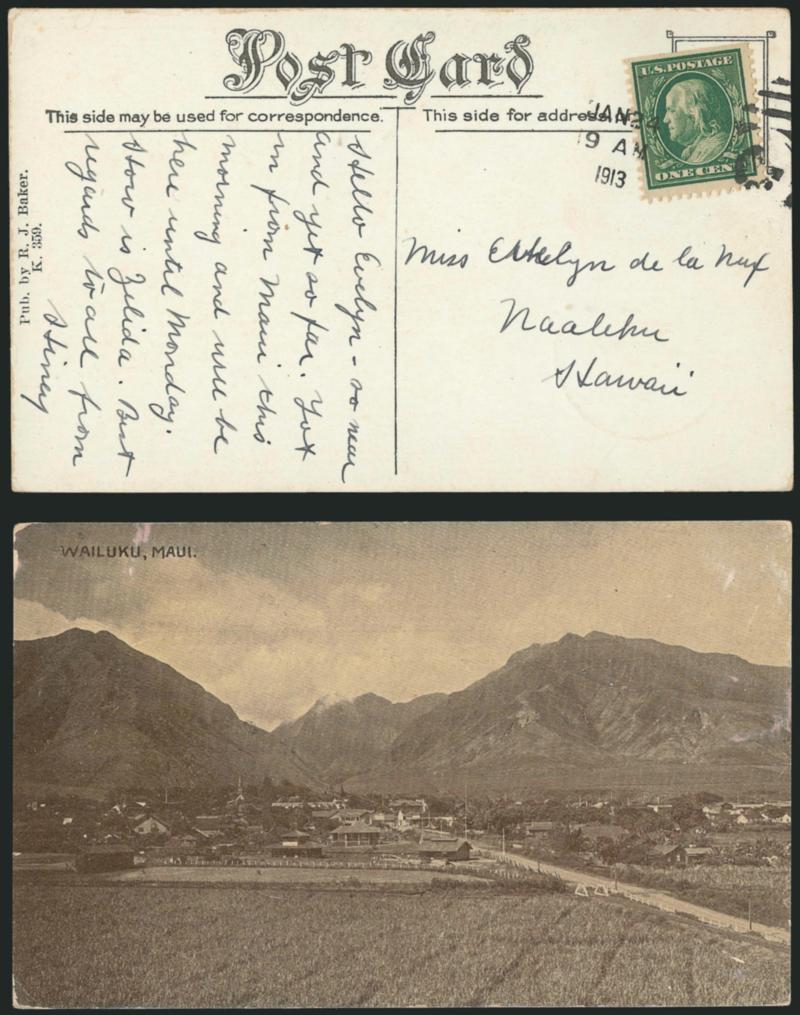 Post Card
This side may be used for correspondence.
This side for address
U.S. POSTAGE
ONE CENT
JAN 24
9 AM
1913
Pub. by R. J. Baker.
K. 359.
Hello Evelyn - so near
and yet so far. Got
in from Maui this
morning and will be
here until Monday.
How is Zelida. Best
regards to all from
Miss Evelyn de la Nux
Naalehu
Hawaii
WAILUKU, MAUI.